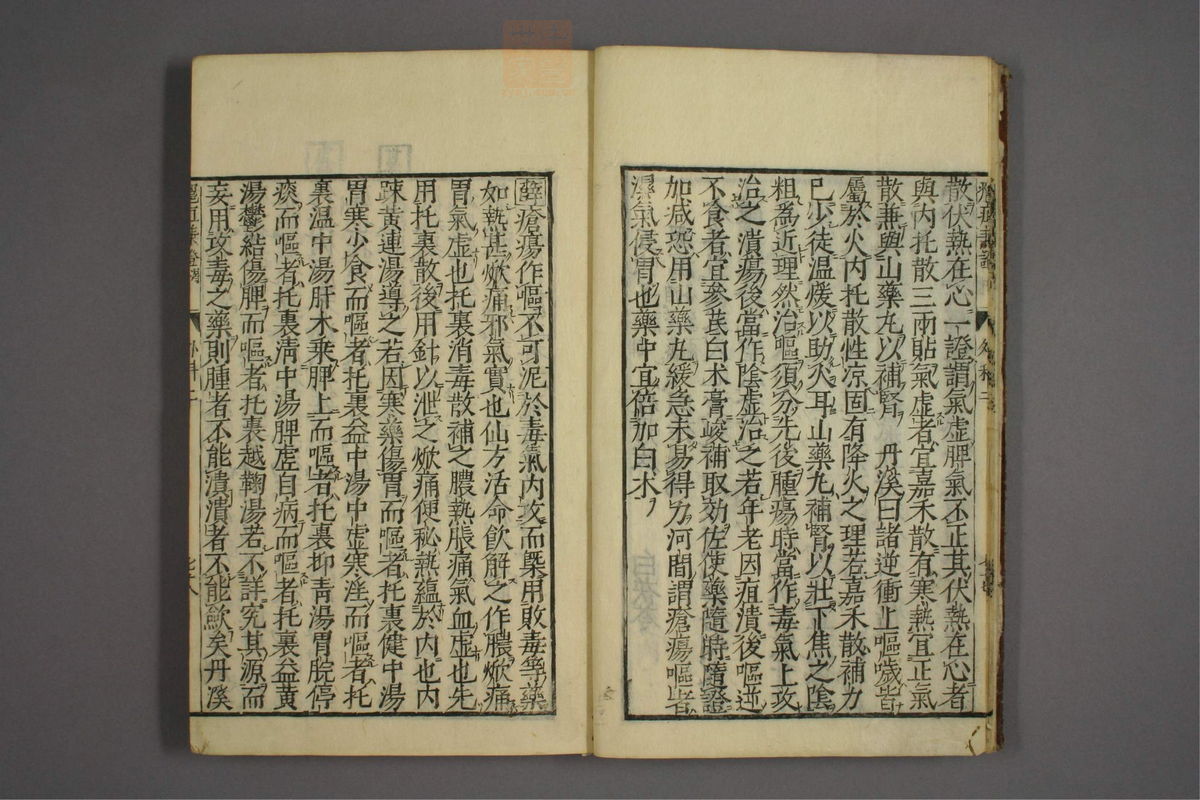 散伏熱在心一證謂氣虛脾氣不正其伏熱在心者
與内托散三兩貼氣虛者宜嘉禾散有寒熱宜正氣
散兼與山藥丸以補腎 丹溪曰諸逆衝上嘔噦皆
屬於火内托散性凉固有降火之理若嘉禾散補力
已少徒温煖以助火耳山藥丸補腎以壯下焦之陰
粗爲近理然治嘔須分先後腫瘍時當作毒氣上攻
治之潰瘍後當作陰虛治之若年老因疽潰後嘔逆
不食者宜參芪白朮膏峻補取効佐使藥隨時隨證
加减恐用山藥丸緩急未易得力河間謂瘡瘍嘔者
濕氣侵胃也藥中宜倍加白朮
薛瘡瘍作嘔不可泥於毒氣内攻而槩用敗毒等藥
如熱甚焮痛邪氣實也仙方活命飲解之作膿焮痛
胃氣虛也托裏消毒散補之膿熟脹痛氣血虛也先
用托裏散後用針以泄之焮痛便秘熱蘊於内也内
踈黃連湯導之若因寒藥傷胃而嘔者托裏健中湯
胃寒少食而嘔者托裏益中湯中虛寒淫而嘔者托
裏温中湯肝木乘脾土而嘔者托裏抑青湯胃脘停
痰而嘔者托裏淸中湯脾虛自病而嘔者托裏益黃
湯鬱結傷脾而嘔者托裏越鞠湯若不詳究其源而
妄用攻毒之藥則腫者不能潰潰者不能歛矣丹溪